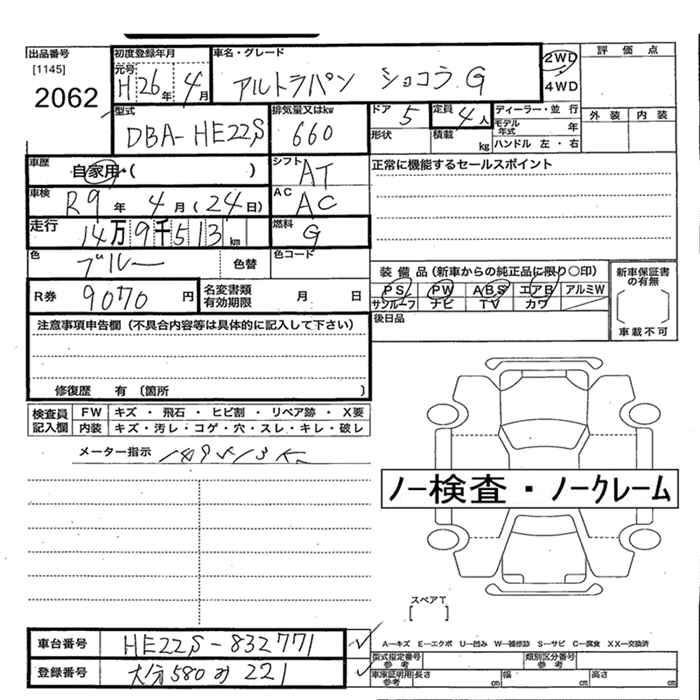 出品番号
[1145]
2062
初度登録年月
元号
H 26年 4月
車名・グレード
アルトラパン ショコラ G
2WD
4WD
評価点
外装 内装
型式
DBA-HE22S
排気量又はkw
660
ドア 5
形状
定員 4人
積載 kg
ディーラー・並行
モデル年式 年
ハンドル 左・右
車歴
自家用・( )
シフト
AT
正常に機能するセールスポイント
車検
R9年 4月(24日)
AC
AC
走行
14万9千513km
燃料
G
色
ブルー
色替
色コード
R券 9070円
名変書類
有効期限
月 日
装備品(新車からの純正品に限り○印)
PS PW ABS エアB アルミW
サンルーフ ナビ TV カワ
後日品
新車保証書
の有無
車載不可
注意事項申告欄(不具合内容等は具体的に記入して下さい)
修復歴 有〔箇所 〕
検査員
記入欄
FW キズ・飛石・ヒビ割・リペア跡・X要
内装 キズ・汚レ・コゲ・穴・スレ・キレ・破レ
メーター指示 149513K
ノー検査・ノークレーム
スペアT
[ ]
車台番号 HE22S-832771
登録番号 大分580み221
A―キズ E―エクボ U―凹み W―補修跡 S―サビ C―腐食 XX―交換済
型式指定番号
参考
類別区分番号
参考
車庫証明用
参考
長さ cm 幅 cm 高さ cm